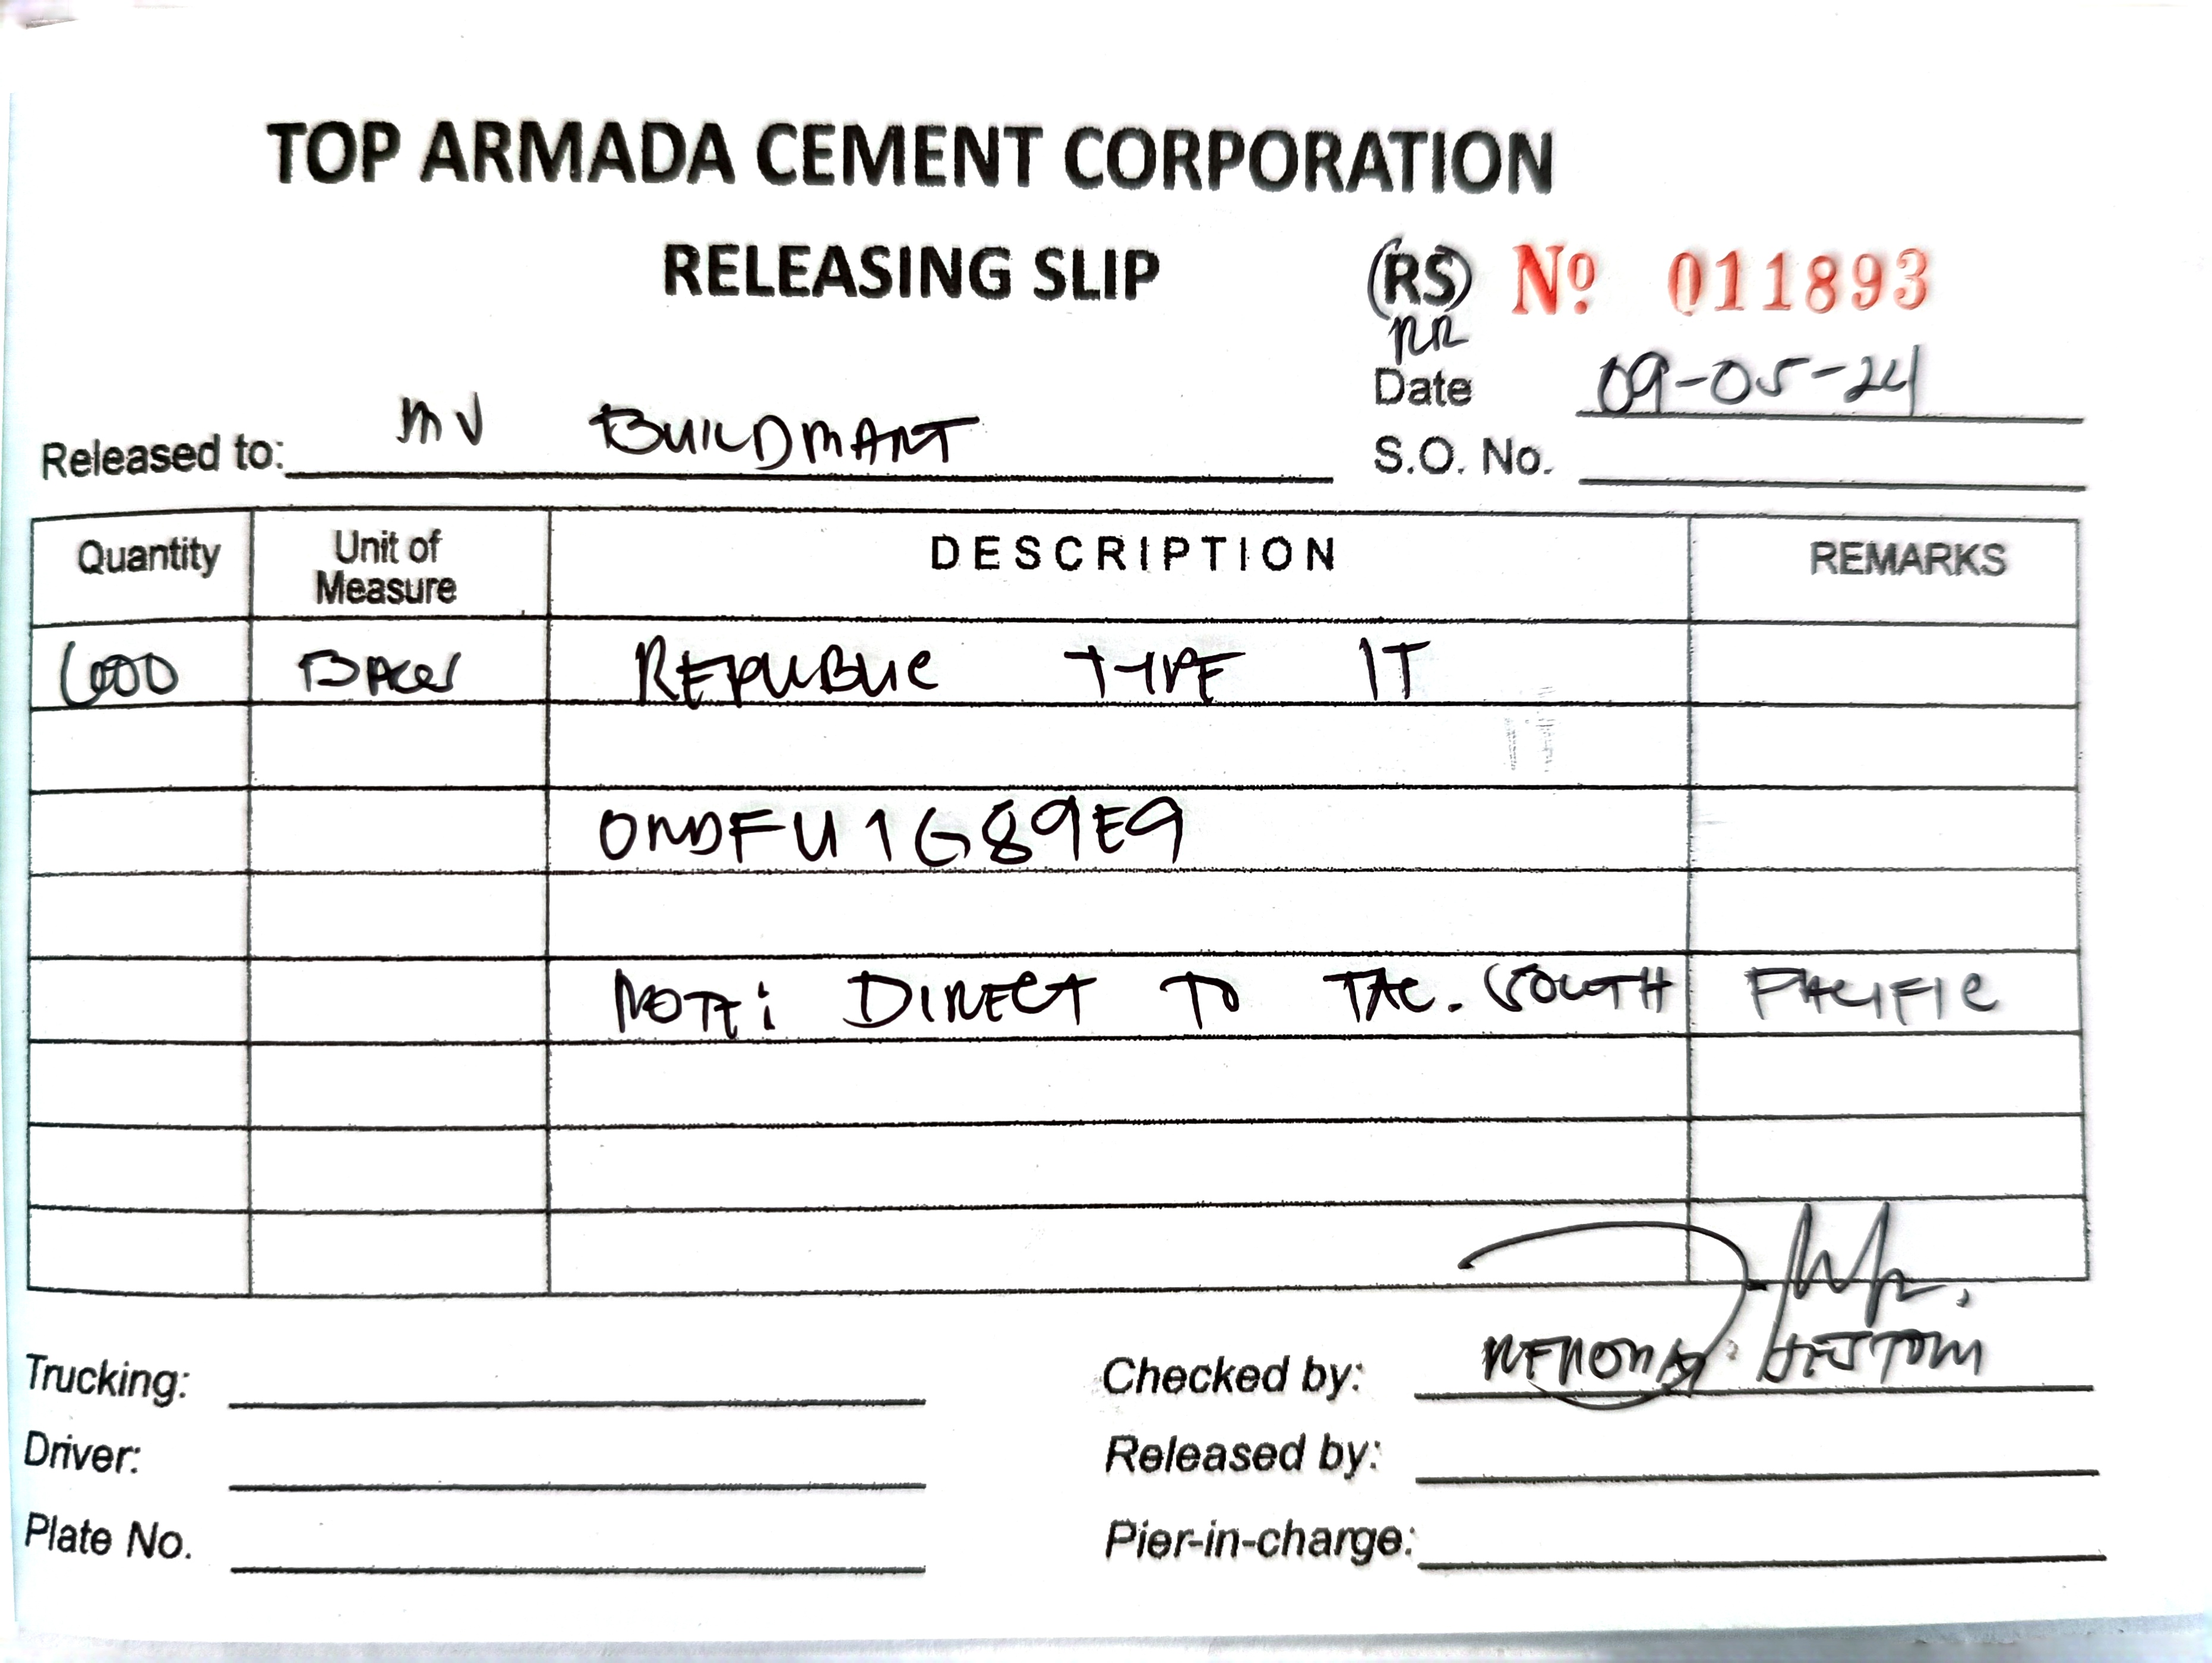 TOP ARMADA CEMENT CORPORATION
RELEASING SLIP
(RS) Nº 011893
RR
Date 09-05-24
Released to: MV BUILDMART
S.O. No.
Quantity Unit of Measure DESCRIPTION REMARKS
600 BAGS REPUBLIC TYPE 1T
ONDFU1G89E9
NOTE: DIRECT TO TAC. SOUTH PACIFIC
Trucking:
Checked by:
Driver:
Released by:
Plate No.
Pier-in-charge: